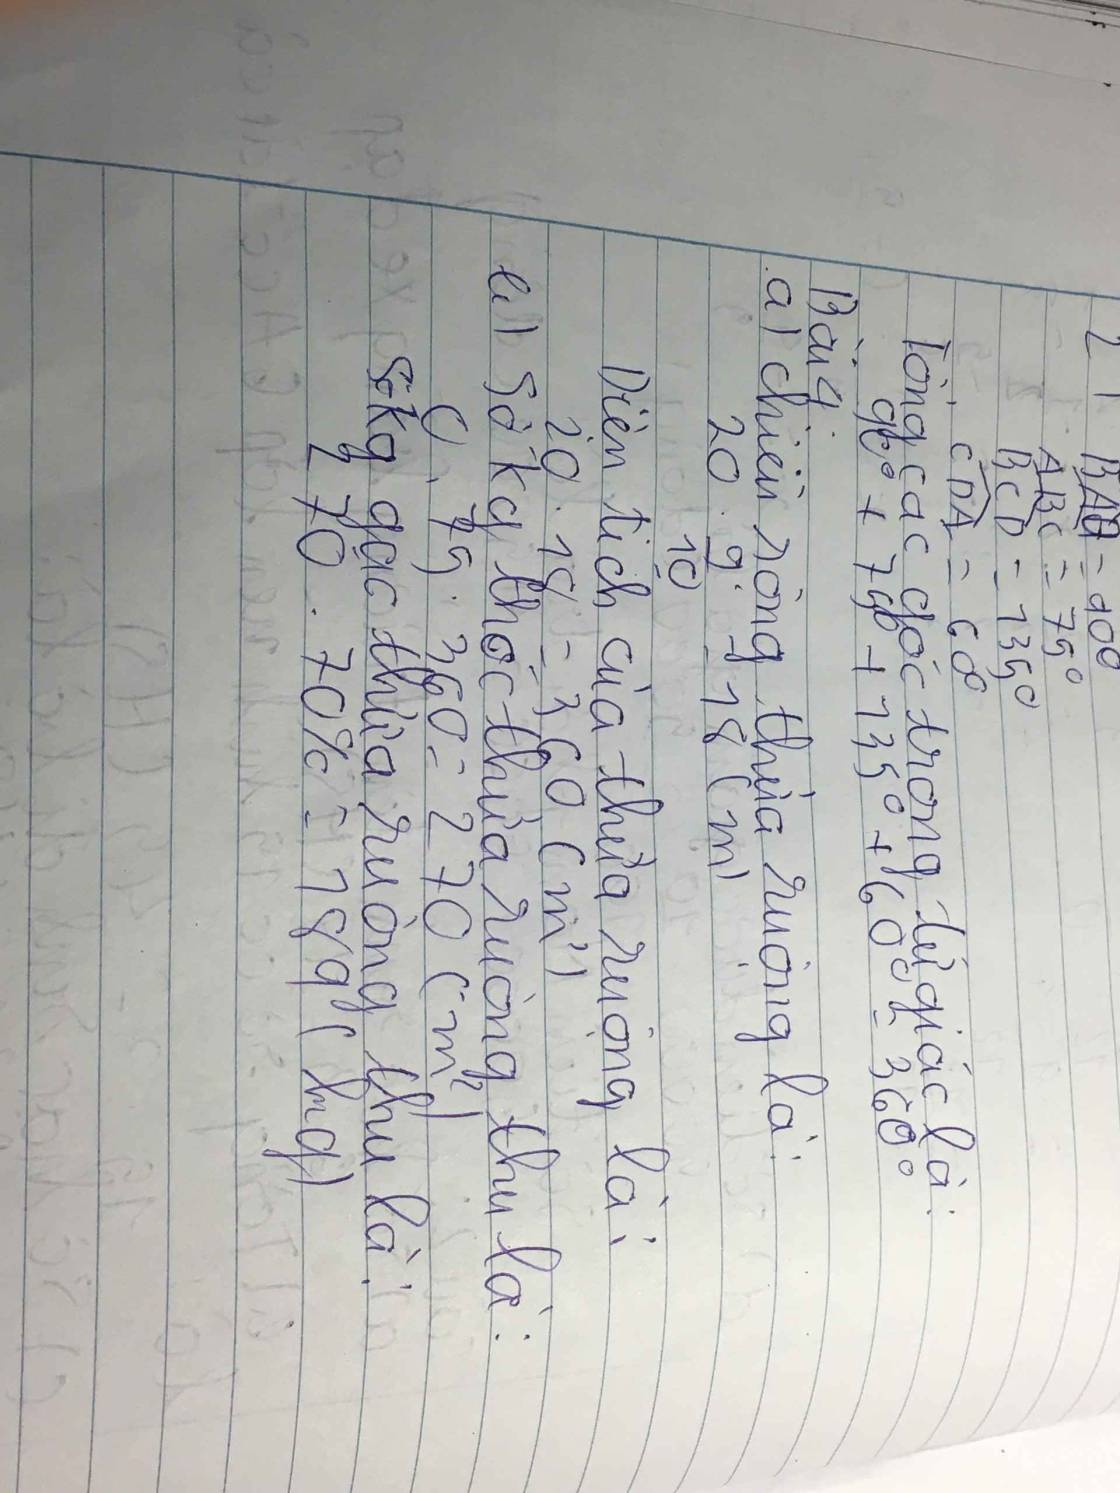 BAD = 90°
ABC = 75°
BCD = 135°
CDA = 60
Tổng các góc trong tứ giác là:
90° + 75° + 135° + 60° = 360°
Bài 4
a) chiều rộng thửa ruộng là:
20 . 9/10 = 18 (m)
Diện tích của thửa ruộng là:
20 . 18 = 360 (m²)
b) Số kg thóc thửa ruộng thu là:
0,75 . 360 = 270 (m²)
Số kg gạo thửa ruộng thu là:
270 . 70% = 189 (kg)